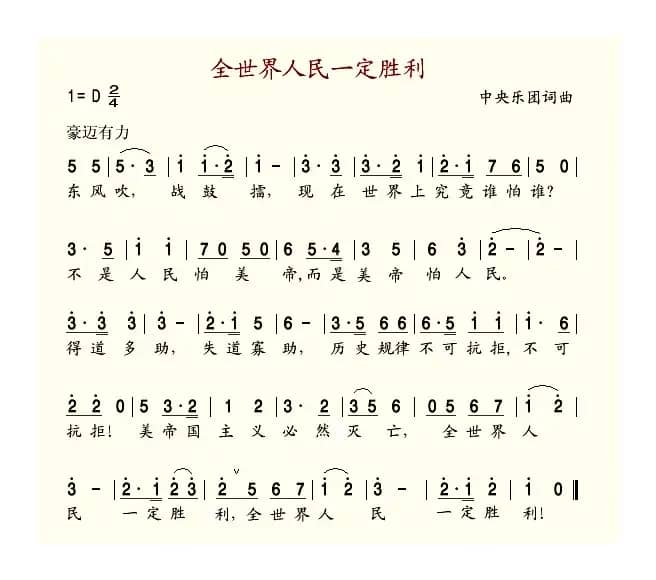 全世界人民一定胜利
1= D 2/4
中央乐团词曲
豪迈有力
5 5 | 5· 3 | i i·2 | i - | 3· 3 | 3·2 i | 2·i 7 6 | 5 0 |
东风吹，战鼓擂，现在世界上究竟谁怕谁？
3· 5 | i i | 7 0 5 0 | 6 5·4 | 3 5 | 6 3 | 2 - | 2 - |
不是人民怕美帝，而是美帝怕人民。
3·3 3 | 3 - | 2·i 5 | 6 - | 3·5 6 6 | 6·5 i i | i· 6 |
得道多助，失道寡助，历史规律不可抗拒，不可
2 2 0 | 5 3·2 | 1 2 | 3· 2 | 3 5 6 | 0 5 6 7 | i 2 |
抗拒！美帝国主义必然灭亡，全世界人
3 - | 2·i 2 3 | 2 5 6 7 | i 2 | 3 - | 2·i 2 | i 0 ‖
民一定胜利，全世界人民一定胜利！